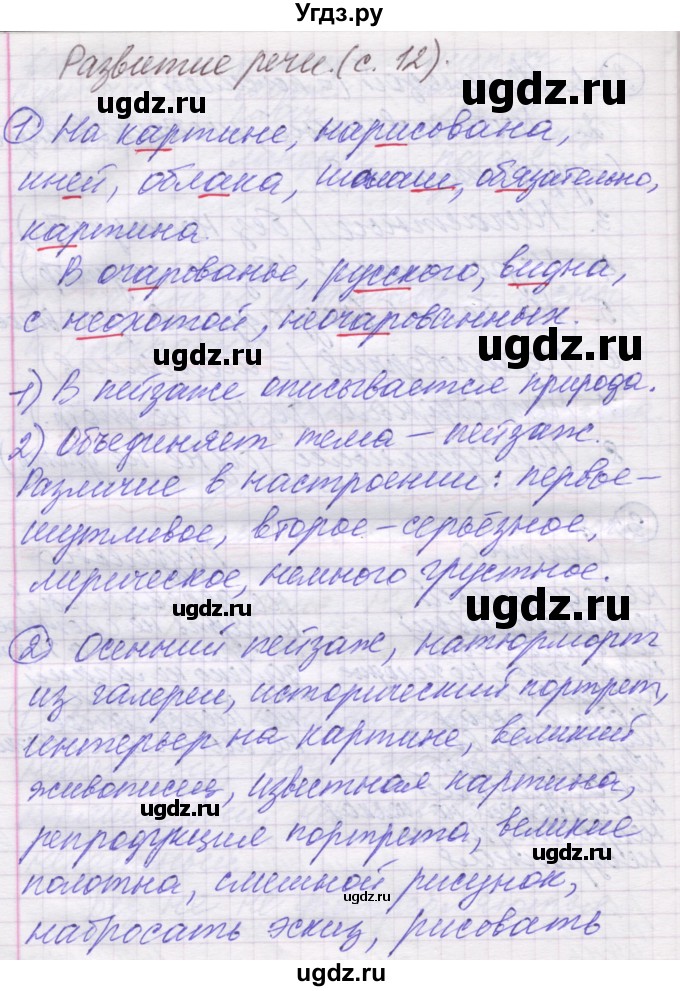 Угдз.ру
Развитие речи. (с. 12).
ugdz.ru ugdz.ru
1 На картине, нарисована,
ugdz.ru
иней, облака, шалаш, обязательно,
картина.
ugdz.ru
В очарованье, русского, видна,
с неохотой, неочарованных.
ugdz.ru
1) В пейзаже описывается природа.
ugdz.ru
2) Объединяет тема – пейзаж.
Различие в настроении: первое –
шутливое, второе – серьёзное,
лирическое, немного грустное.
ugdz.ru ugdz.ru
2 Осенний пейзаж, натюрморт
из галереи, исторический портрет,
интерьер на картине, великий
живописец, известная картина,
ugdz.ru
репродукция портрета, великие
ugdz.ru
полотна, смешной рисунок,
ugdz.ru
набросать эскиз, рисовать
ugdz.ru